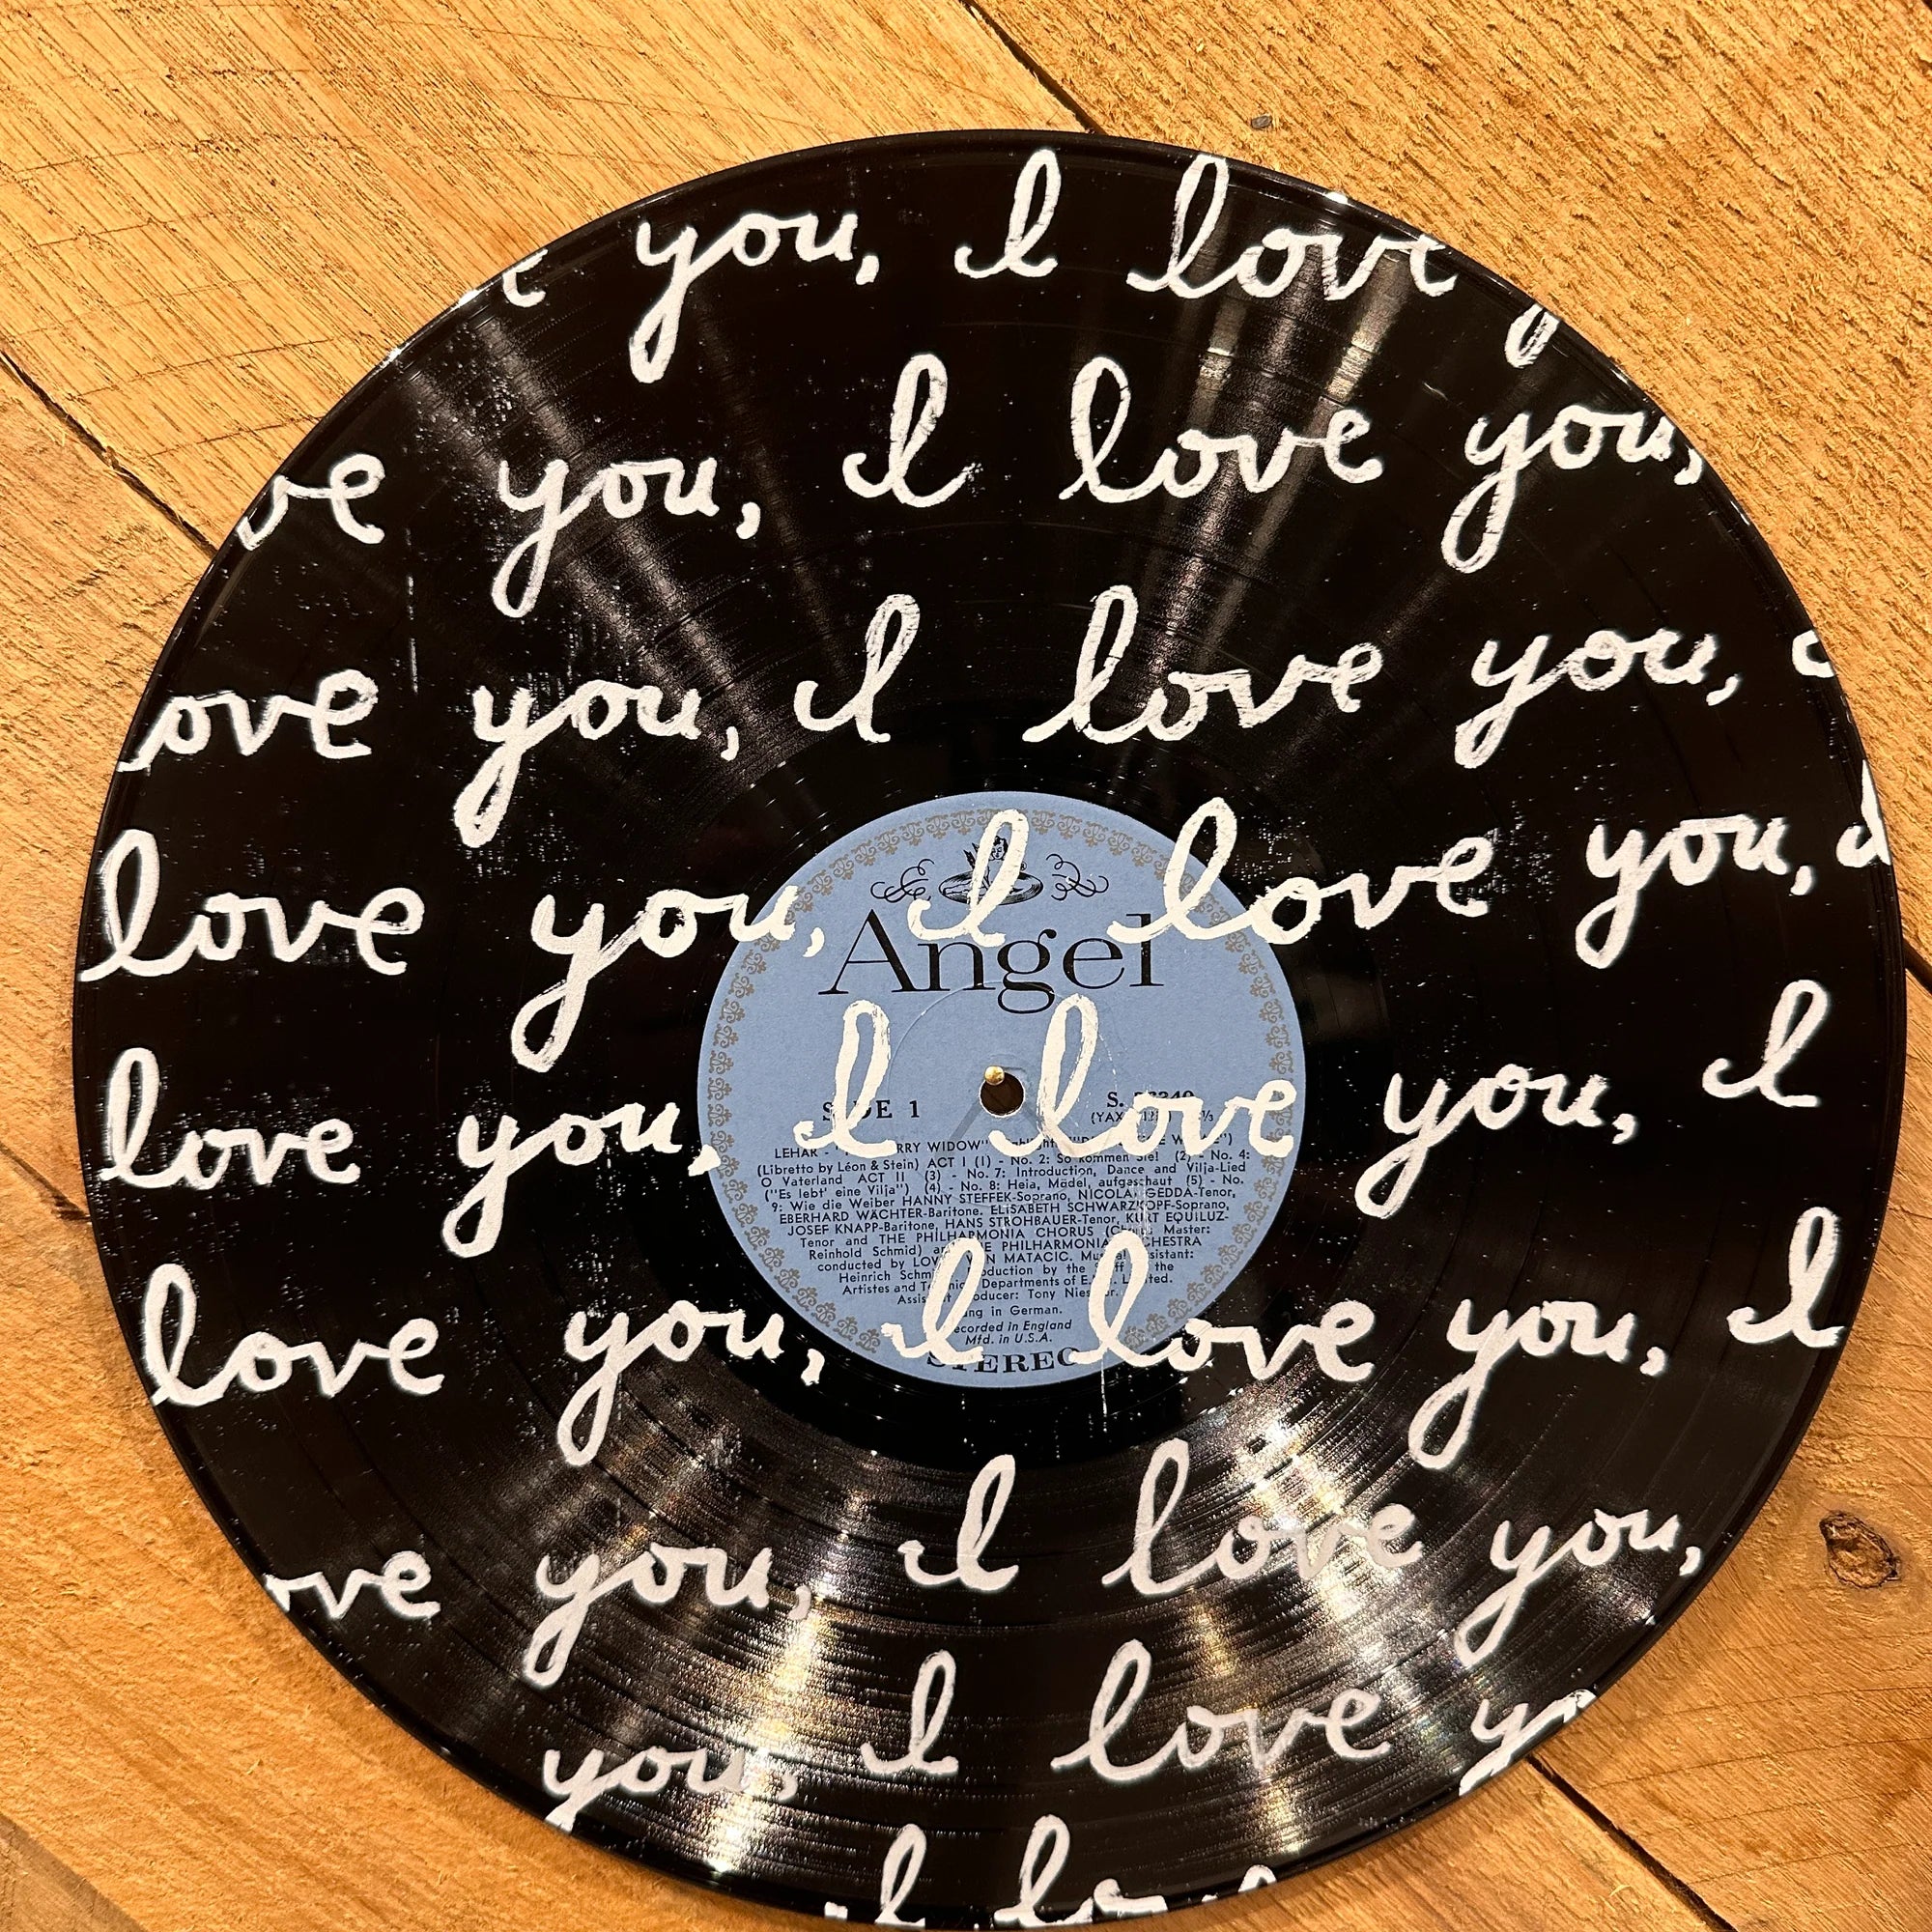 you, I love
ve you, I love you,
ove you, I love you,
love you, I love you, I
Angel
love you, I love you, I
SIDE 1
LEHAR - "THE MERRY WIDOW"
(Libretto by Léon & Stein) ACT I (1) - No. 2: So kommen Sie! (2) - No. 4:
O Vaterland ACT II (3) - No. 7: Introduction, Dance and Vilja-Lied
("Es lebt' eine Vilja") (4) - No. 8: Heia, Mädel, aufgeschaut (5) - No.
9: Wie die Weiber HANNY STEFFEK-Soprano, NICOLAI GEDDA-Tenor,
EBERHARD WÄCHTER-Baritone, ELISABETH SCHWARZKOPF-Soprano,
JOSEF KNAPP-Baritone, HANS STROHBAUER-Tenor, KURT EQUILUZ-
Tenor and THE PHILHARMONIA CHORUS (Chorus Master:
Reinhold Schmid) and THE PHILHARMONIA ORCHESTRA
conducted by LOVRO VON MATACIC. Musical Assistant:
Heinrich Schmidt Production by the Staff of the
Artistes and Technical Departments of E.M.I. Limited.
Assistant Producer: Tony
Sung in German.
Recorded in England
Mfd. in U.S.A.
love you, I love you, I
STEREO
ove you, I love you,
you, I love yo
I lo